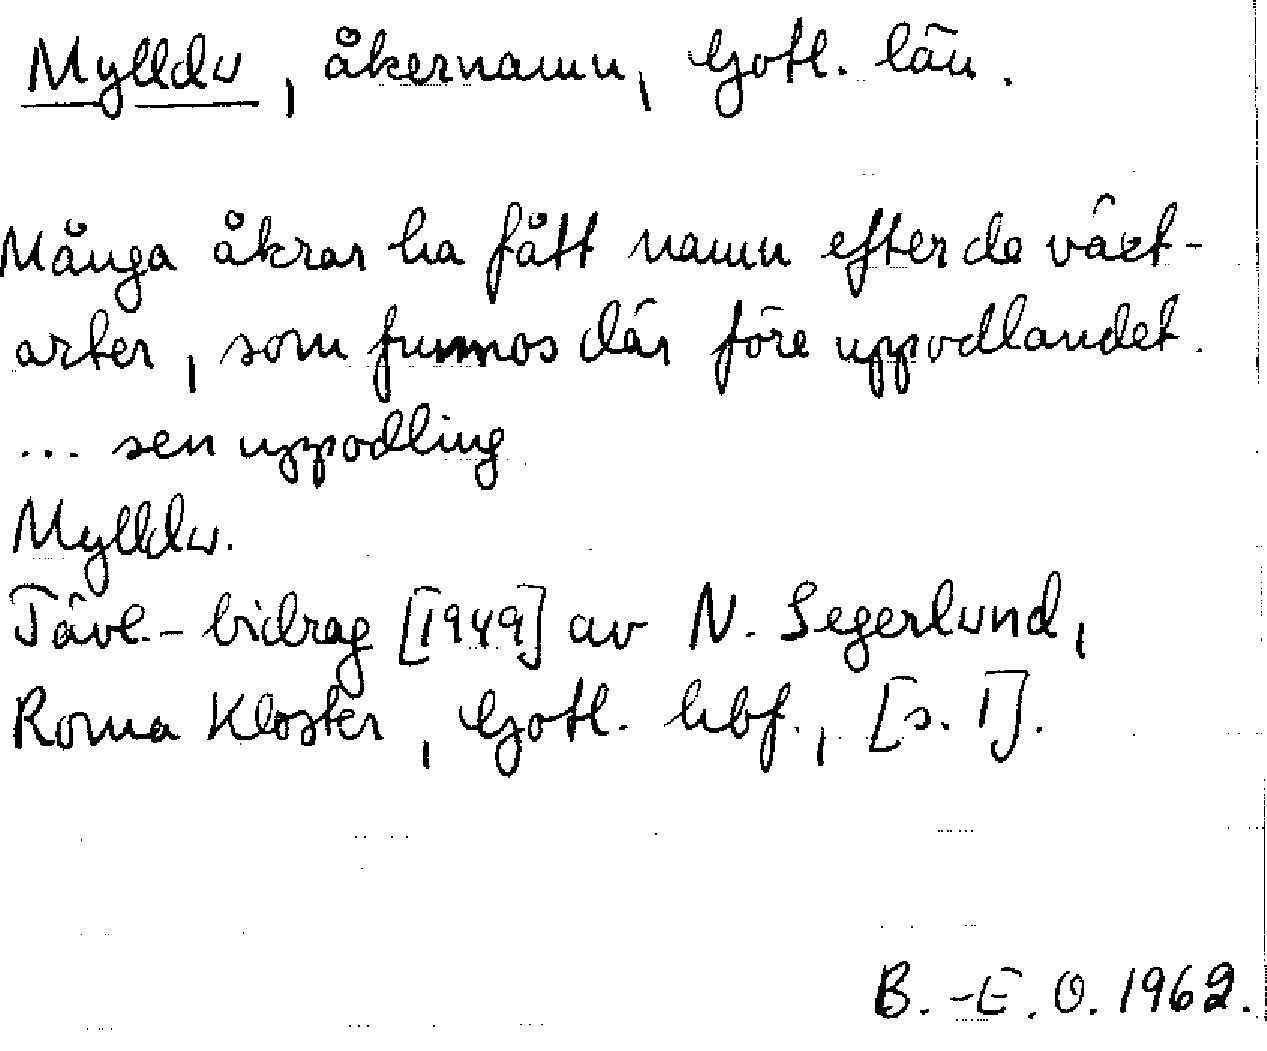 Mylldu, åkernamn, Gotl. län.
Många åkrar ha fått namn efter de växt-
arter, som funnos där före uppodlandet.
... sen uppodling
Mylldu.
Tävl.-bidrag [1949] av N. Segerlund,
Roma Kloster, Gotl. hbf., [s. 1].
B.-E. O. 1962.